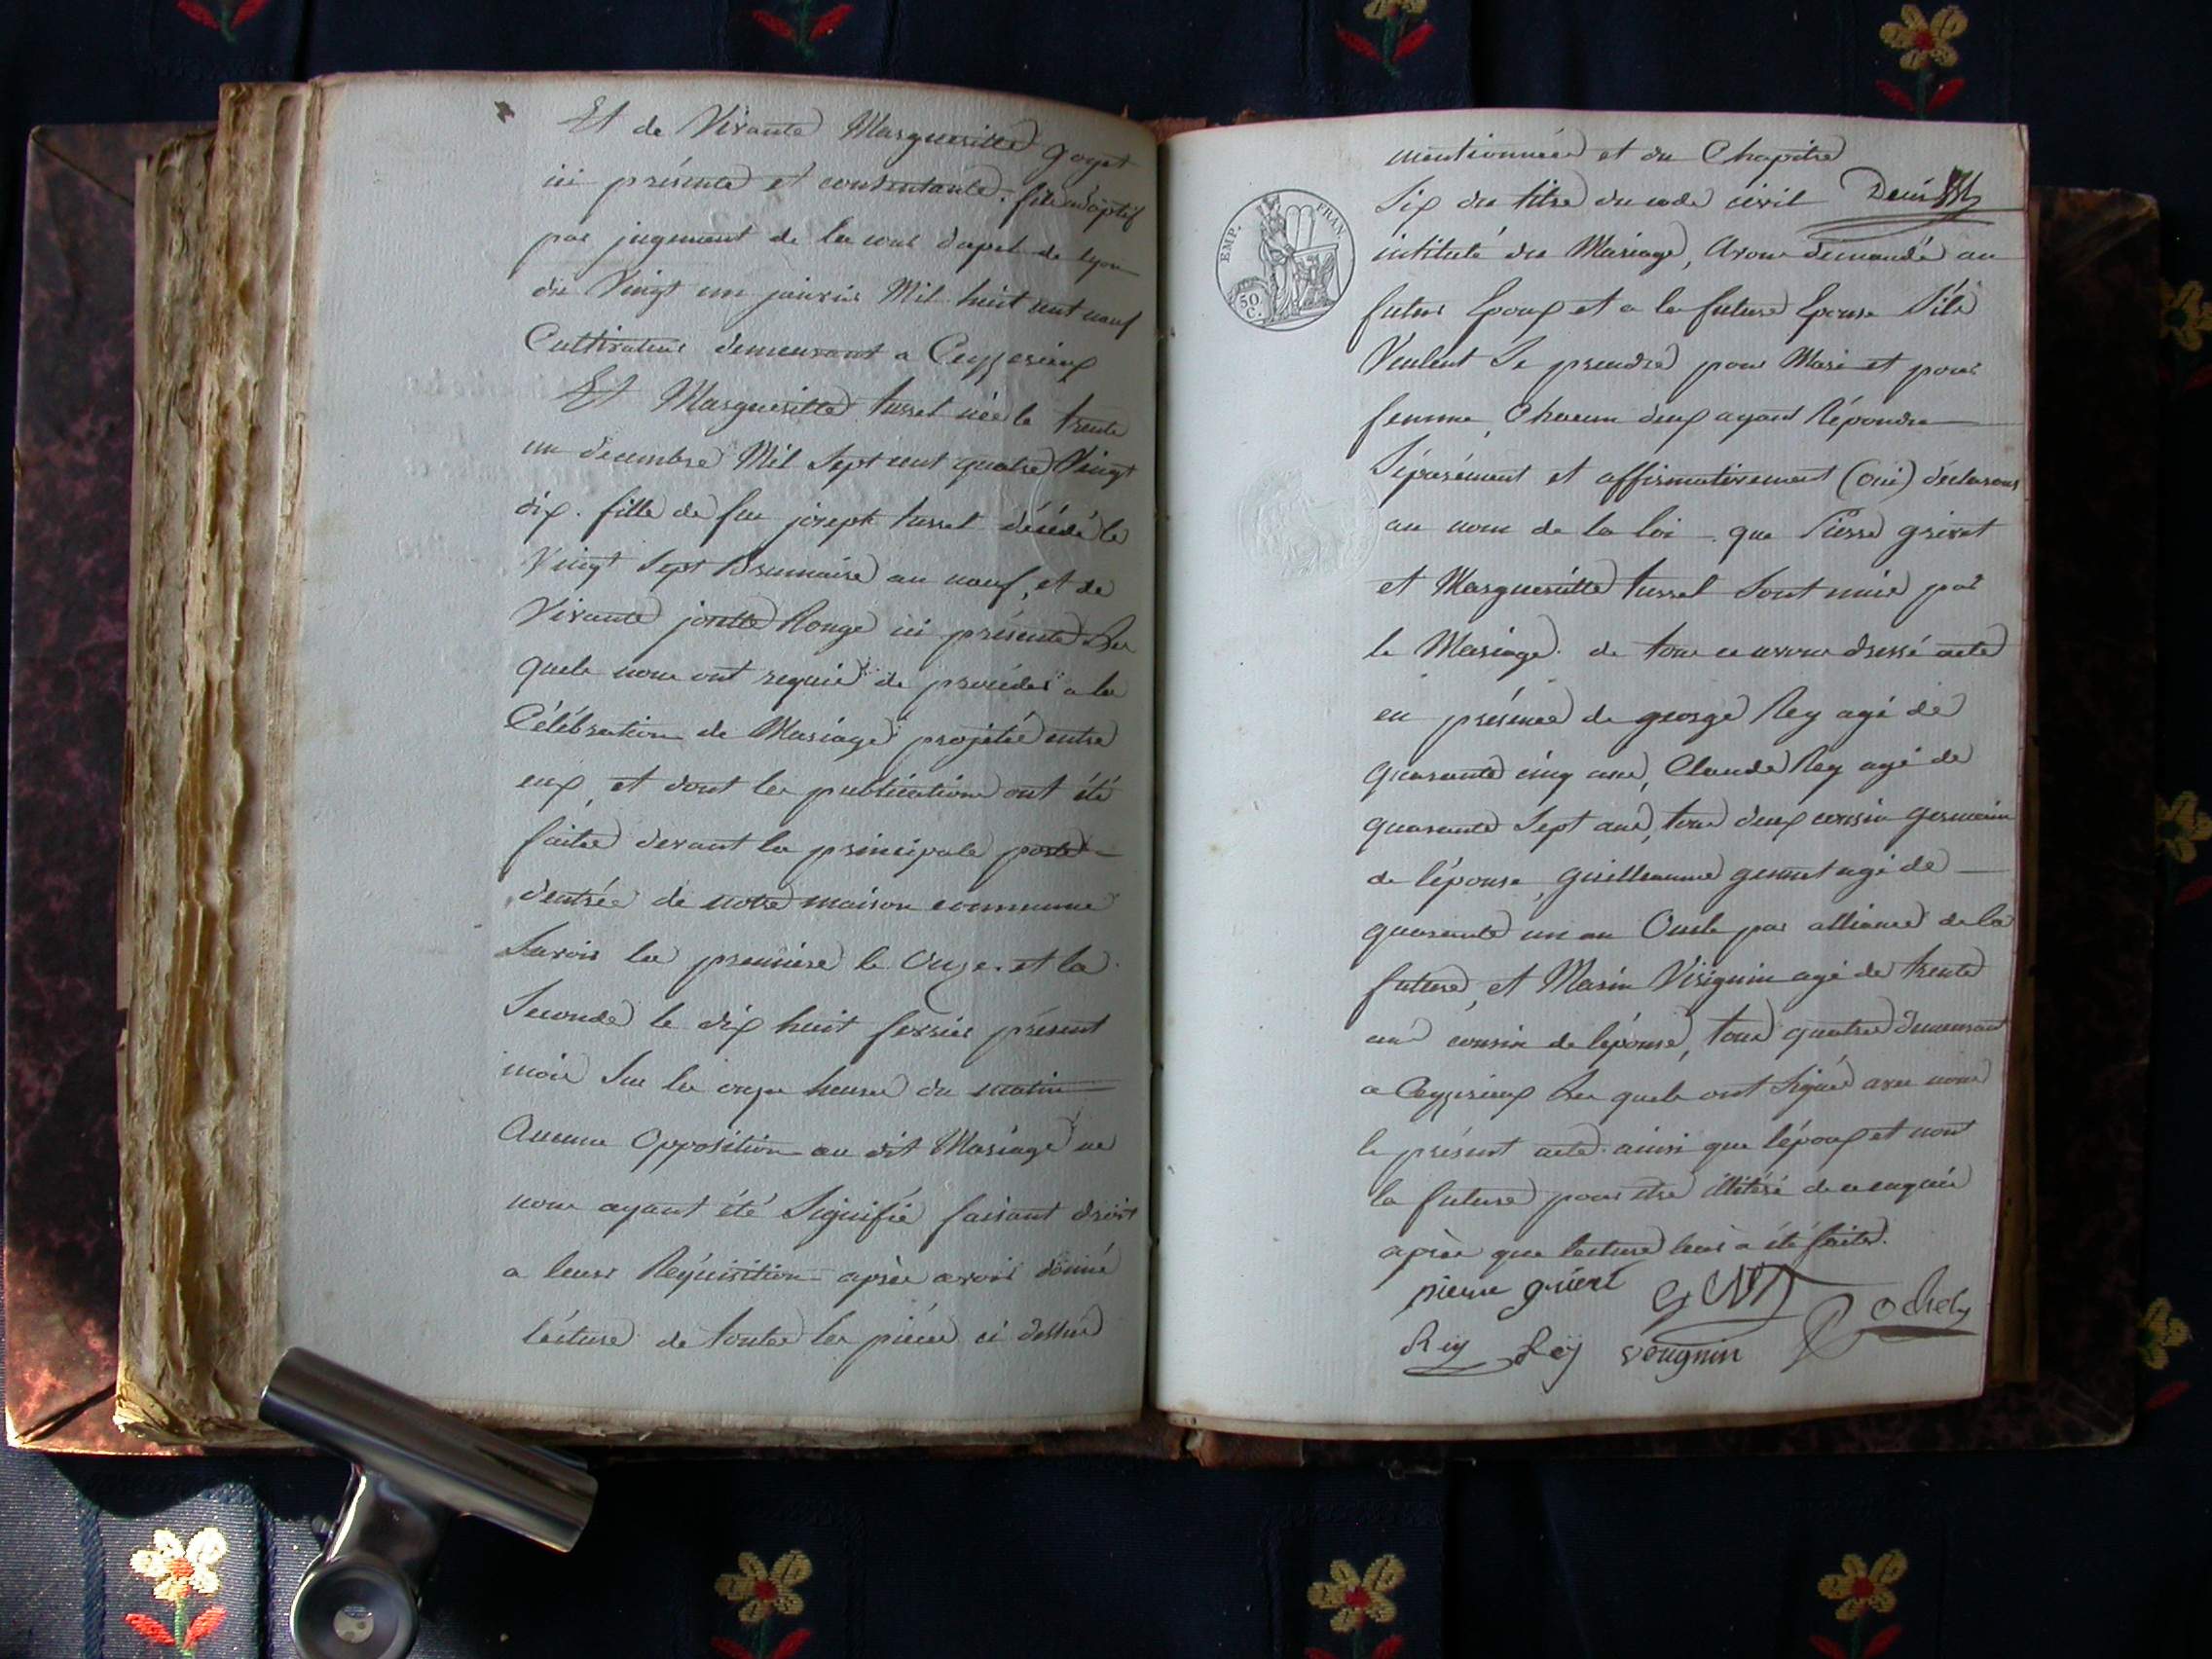 Et de Vivante Margueritte goyet
ici présente et consentante. fils adoptif
par jugement de la cour dapel de lyon
du Vingt un janvier Mil huit cent neuf
Cultivateur demeurant a Ceyzerieux
Et Margueritte tussel née le trente
un decembre Mil Sept cent quatre Vingt
dix. fille de feu joseph tussel décédé le
Vingt Sept Brumaire an neuf, et de
Vivante Ronge ici présente Les
quels nous ont requis de procéder a la
Célébration de Mariage projetée entre
eux, et dont les publications ont été
faites devant la principale porte
dentrée de notre maison commune
Savoir la première le Onze. et la
Seconde le dix huit fevrier présent
mois Sur les onze heures du matin
Aucune Opposition au dit Mariage ne
nous ayant été Signifié faisant droit
a leur Réquisition après avoir donné
lécture de toutes les pièces ci dessus
mentionnées et du Chapitre
Six du titre du code civil
intitulé du Mariage, Avons demandé au
futur Epoux et a la future Epouse S'ils
Veulent Se prendre pour Mari et pour
femme, Chacun deux ayant Répondu
Séparément et affirmativement (oui) déclarons
au nom de la loi que Pierre grivet
et Margueritte tussel Sont unis par
le Mariage. de tous ce avons dressé acte
en présence de george Rey agé de
quarante cinq ans, Claude Rey agé de
quarante Sept ans, tous deux cousin germain
de l'épouse, guillaume agé de
quarante un an Oncle par alliance de la
future, et Marin agé de trente
ans cousin de lépouse, tous quatre demeurant
a Ceyzerieux Les quels ont Signé avec nous
le présent acte. ainsi que lépoux et nont
la future pour etre illitéré de ce enquis
après que lecture leur a été faite.
EMP. FRAN.
50 C.
pierre grivet
Rey Rey